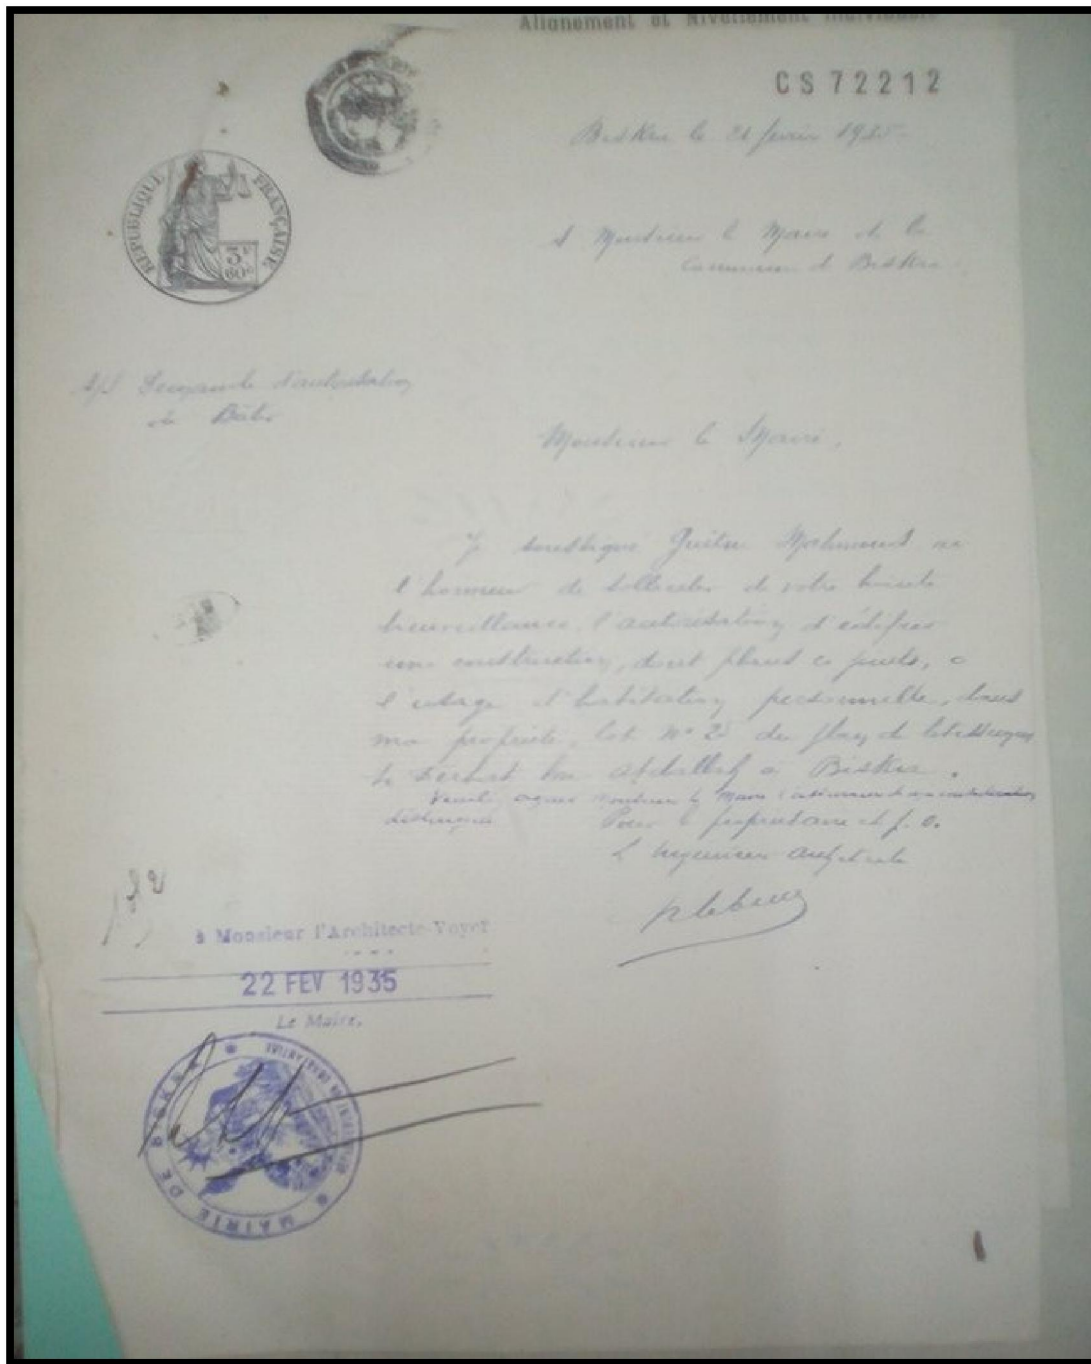 Alignement et Nivellement Individuels
CS 72212
Biskra le 21 février 1935
RÉPUBLIQUE FRANÇAISE
3F
60c
A Monsieur le Maire de la
Commune de Biskra
Demande d'autorisation
de Bâtir
Monsieur le Maire,
Je soussigné Mahmoud ai
l'honneur de solliciter de votre haute
bienveillance, l'autorisation d'édifier
une construction, dont plans ci joints, à
l'usage d'habitation personnelle, dans
ma propriété, lot N° 2 du plan de
Ferhat ben Abdallah à Biskra.
Veuillez agréer Monsieur le Maire l'assurance de ma considération
distinguée. Pour le propriétaire et p. o.
L'ingénieur architecte
à Monsieur l'Architecte-Voyer
22 FEV 1935
Le Maire,
MAIRIE DE BISKRA